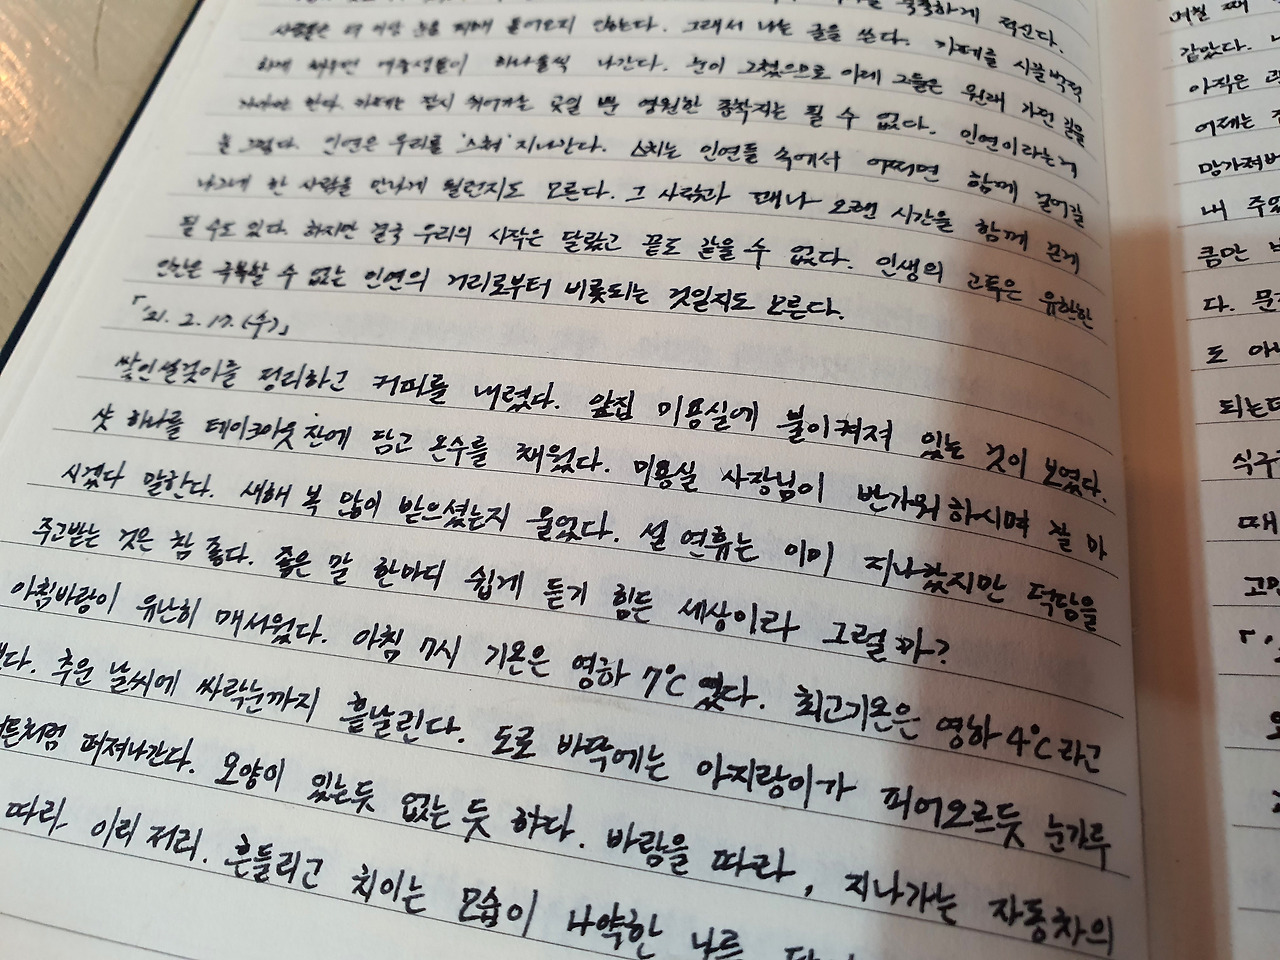 축축하게 적신다.
사람들은 더 이상 눈을 피해 들어오지 않는다. 그래서 나는 글을 쓴다. 카페를 시끌벅적
하게 채우던 여중생들이 하나둘씩 나간다. 눈이 그쳤으므로 이제 그들은 원래 가던 길을
가야만 한다. 카페는 잠시 쉬어가는 곳일 뿐 영원한 종착지는 될 수 없다. 인연이라는게
늘 그렇다. 인연은 우리를 '스쳐' 지나간다. 스치는 인연들 속에서 어쩌면 함께 걸어갈
나그네 한 사람을 만나게 될런지도 모른다. 그 사람과 꽤나 오랜 시간을 함께 걷게
될 수도 있다. 하지만 결국 우리의 시작은 달랐고 끝도 같을 수 없다. 인생의 고독은 유한한
인간은 극복할 수 없는 인연의 거리로부터 비롯되는 것일지도 모른다.
「21. 2. 17. (수)」
쌓인 설겆이를 정리하고 커피를 내렸다. 앞집 미용실에 불이 켜져 있는 것이 보였다.
샷 하나를 테이크아웃 잔에 담고 온수를 채웠다. 미용실 사장님이 반가워 하시며 잘 마
시겠다 말한다. 새해 복 많이 받으셨는지 물었다. 설 연휴는 이미 지나갔지만 덕담을
주고받는 것은 참 좋다. 좋은 말 한마디 쉽게 듣기 힘든 세상이라 그럴까?
아침바람이 유난히 매서웠다. 아침 7시 기온은 영하 7℃였다. 최고기온은 영하 4℃라고
했다. 추운 날씨에 싸락눈까지 흩날린다. 도로 바닥에는 아지랑이가 피어오르듯 눈가루
처럼 퍼져나간다. 모양이 있는듯 없는 듯 하다. 바람을 따라, 지나가는 자동차의
따라 이리 저리. 흔들리고 치이는 모습이 나약한 나를
같았다.
아직은
어제는
망가져버
내 주있
큼만
다. 문
도 아
되는데
식구
때
고민